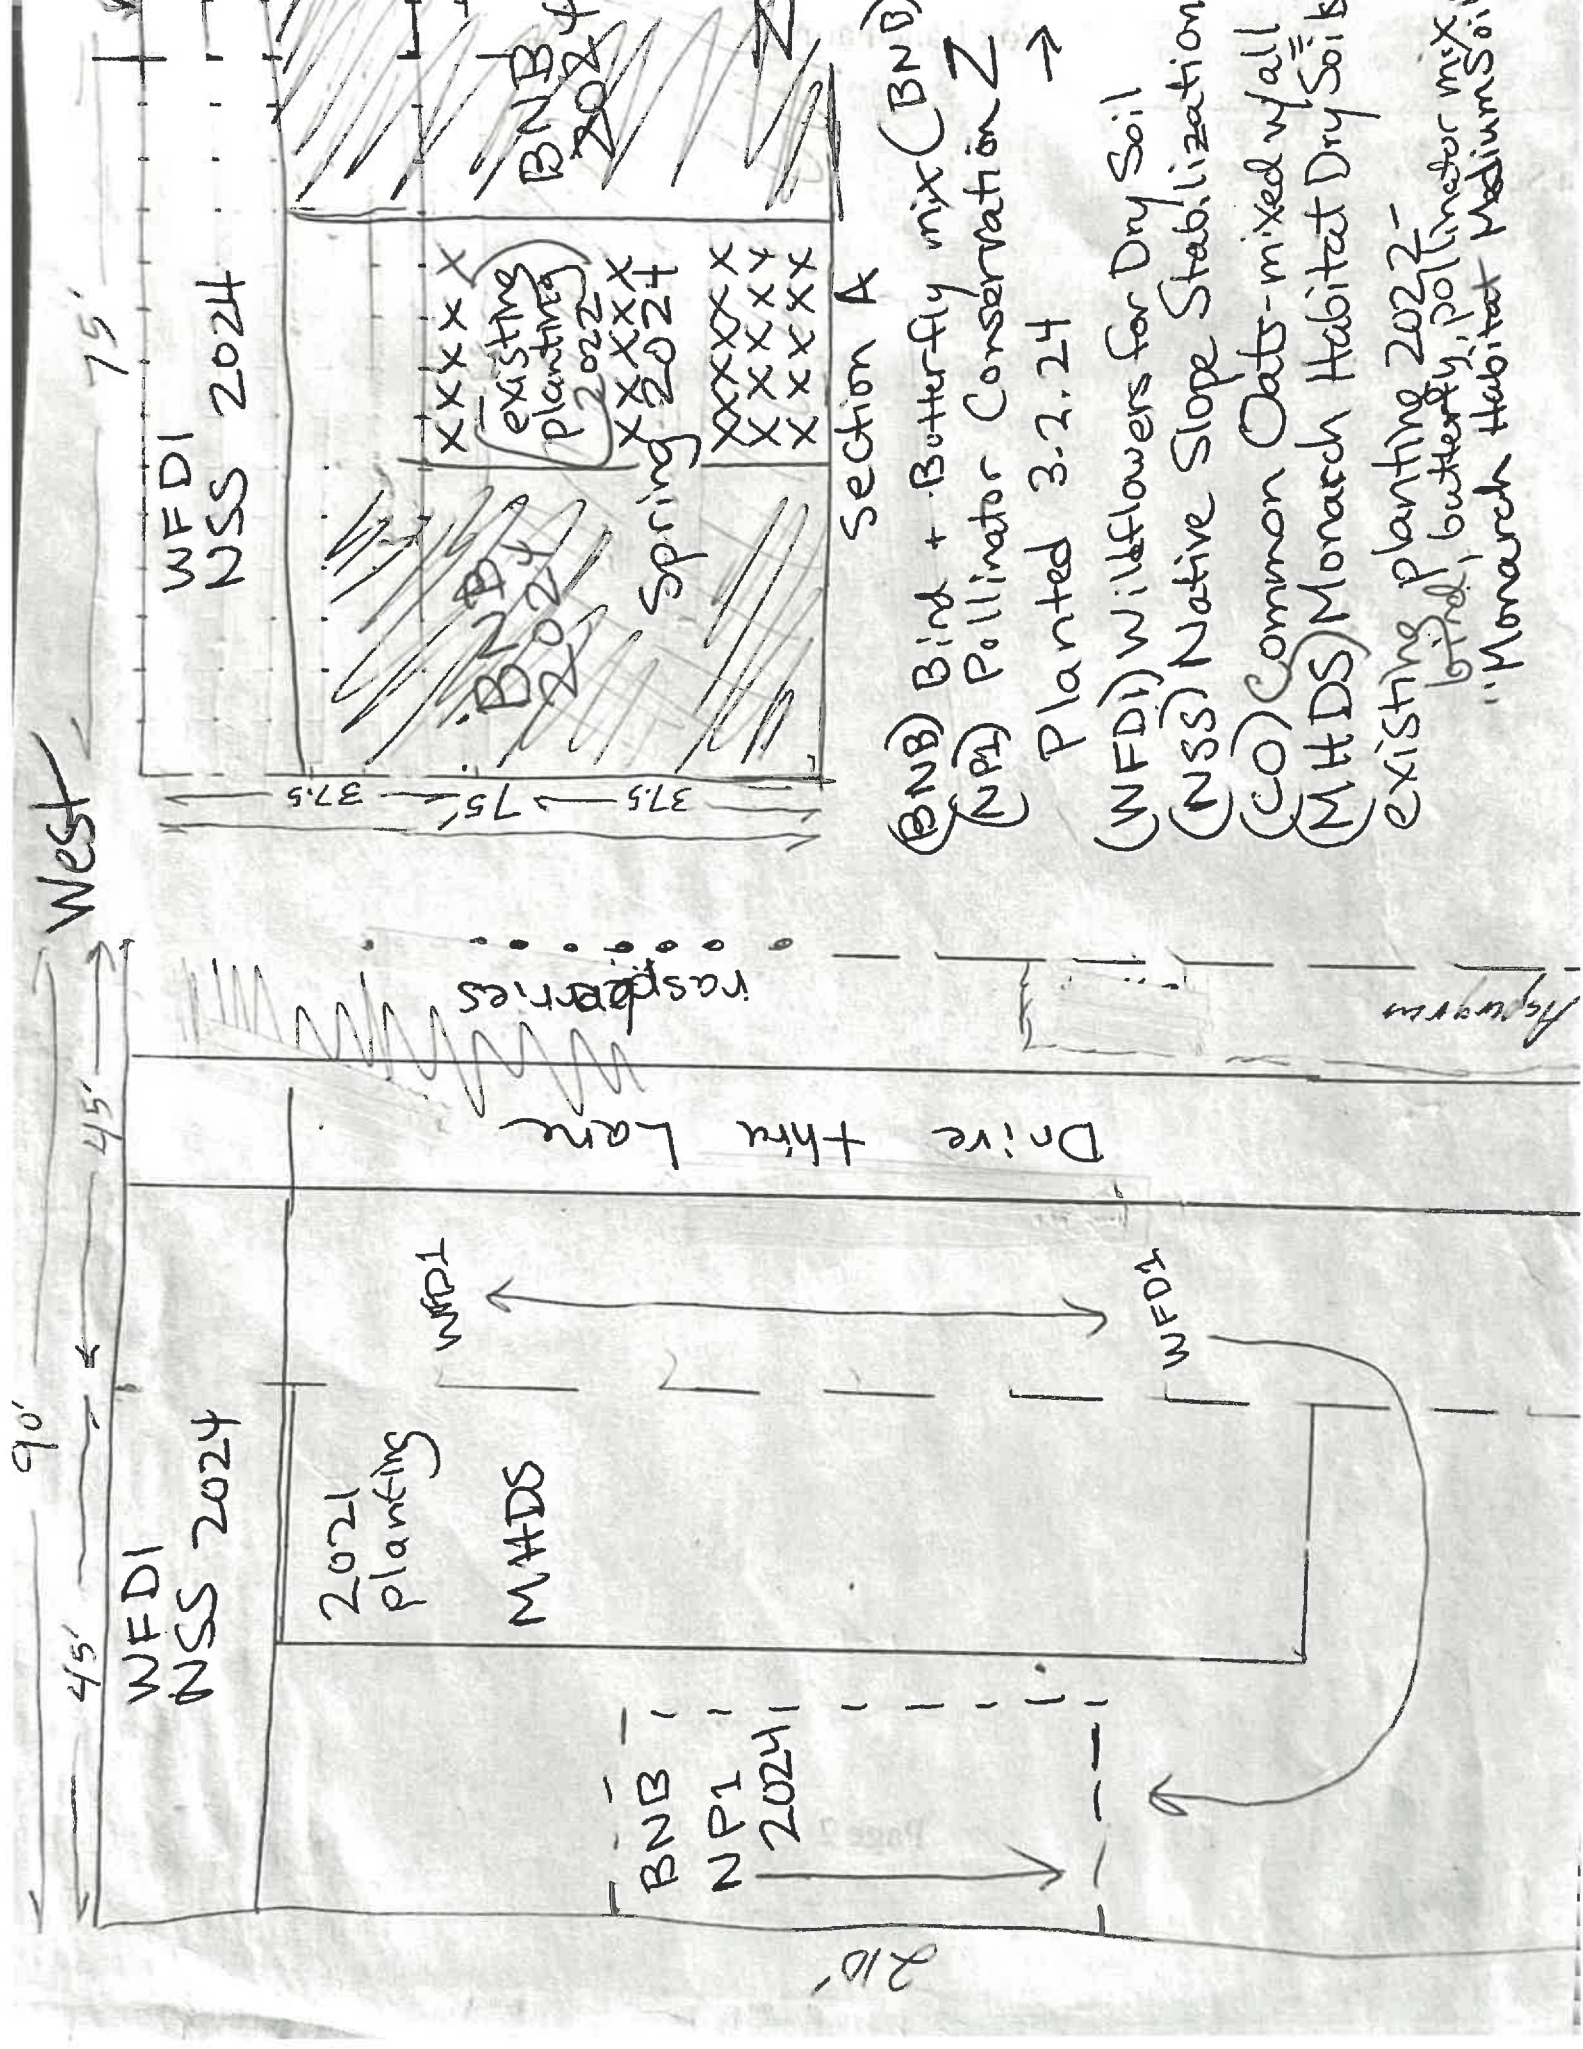 West
90'
45'
45'
75'
WFD1
NSS 2024
WFD1
NSS 2024
2021
planting
MHDS
WFD1
WFD1
BNB
NP1
2024
210'
Drive thru Lane
raspberries
37.5
75'
37.5
BNB
2024
xxxxx
existing
planting
2022
xxxxx
Spring 2024
xxxxx
xxxxx
xxxxx
BNB
Section A
(BNB) Bird + Butterfly mix (BNB)
(NP1) Pollinator Conservation
Planted 3.2.24
(WFD1) Wildflowers for Dry Soil
(NSS) Native Slope Stabilization
(CO) Common Oats-mixed w/all
(MHDS) Monarch Habitat Dry Soil
existing planting 2022-
bird, butterfly, pollinator mix
"Monarch Habitat Medium Soil
Page 2